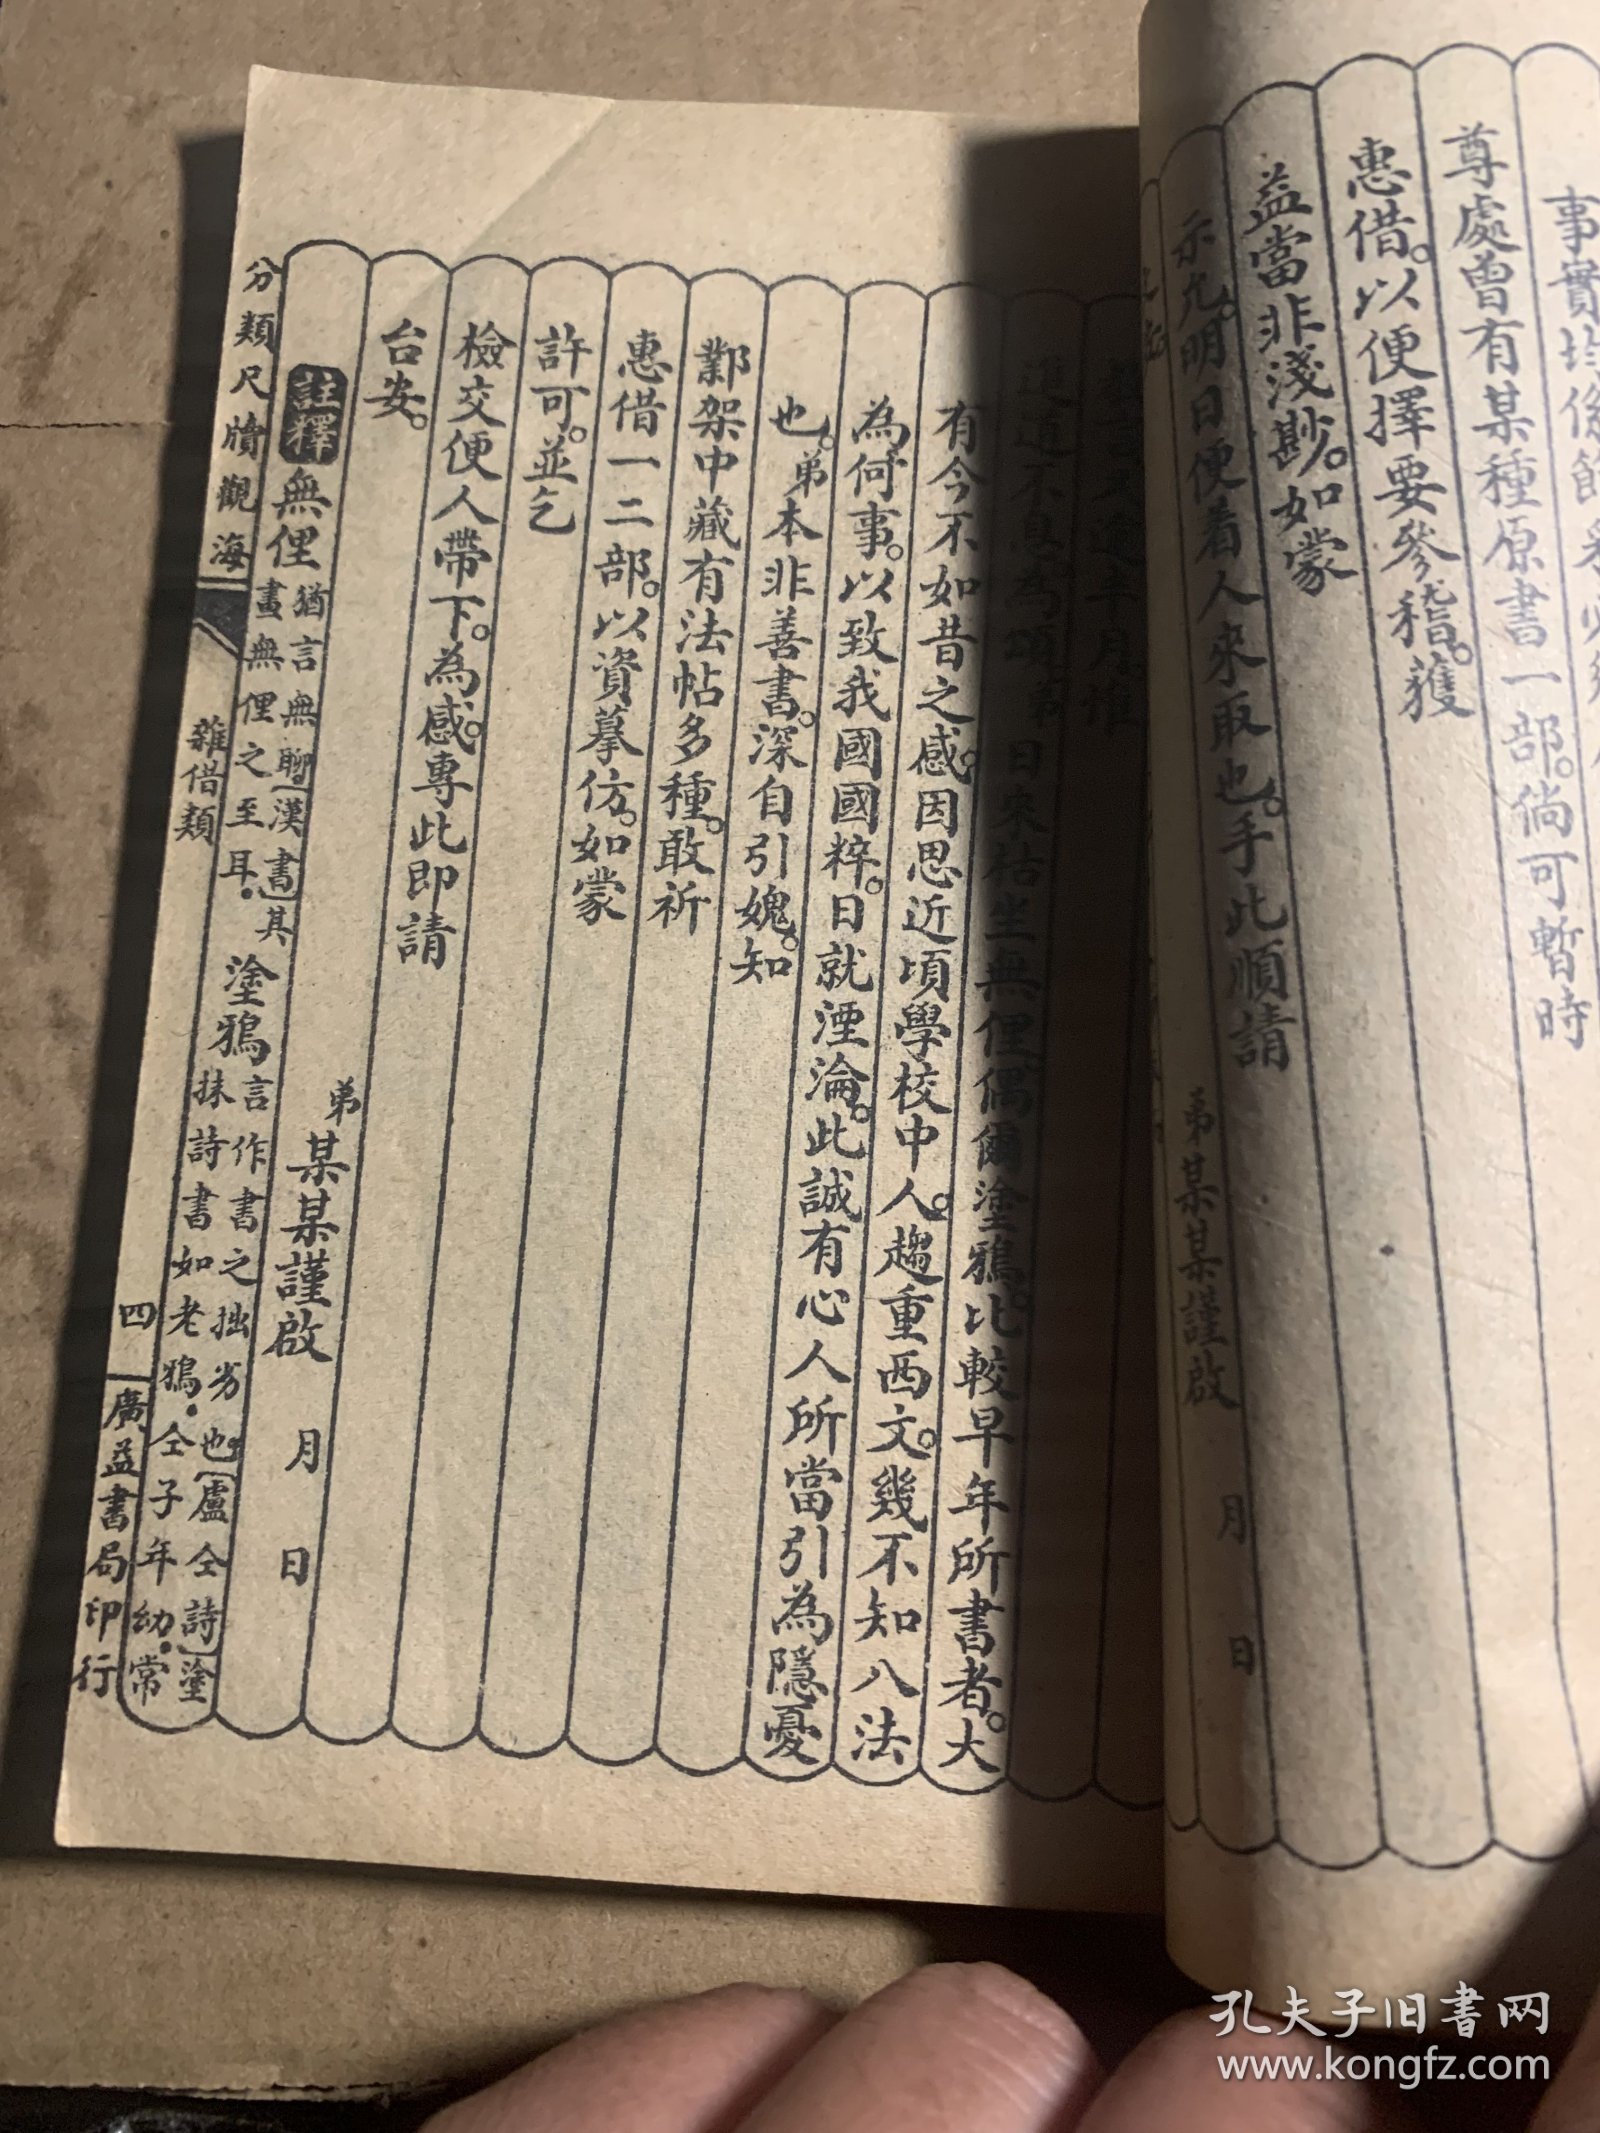 事實均係
尊處曾有某種原書一部。倘可暫時
惠借。以便擇要參稽。獲
益當非淺尠。如蒙
示允。明日便着人來取也。手此順請
弟某某謹啟　月　日
日來枯坐無俚。偶爾塗鴉。比較早年所書者。大
有今不如昔之感。因思近頃學校中人。趨重西文。幾不知八法
為何事。以致我國國粹。日就湮淪。此誠有心人所當引為隱憂
也。弟本非善書。深自引媿。知
鄴架中藏有法帖多種。敢祈
惠借一二部。以資摹仿。如蒙
許可。並乞
檢交便人帶下。為感。專此即請
台安。
弟某某謹啟　月　日
註釋 無俚 猶言無聊〔漢書〕其
畫無俚之至耳。
塗鴉 言作書之拙劣也〔盧仝詩〕塗
抹詩書如老鴉。仝子年幼。常
分類尺牘觀海
雜借類
四
廣益書局印行
孔夫子旧书网
www.kongfz.com